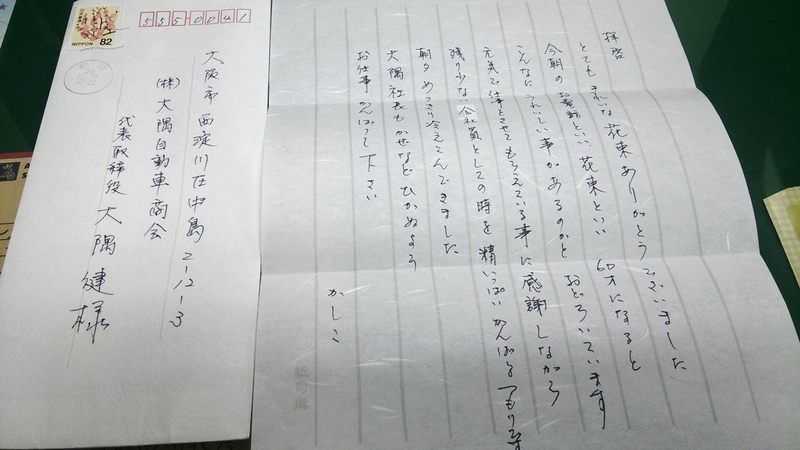 拝啓
とてもきれいな花束ありがとうございました
今朝のお電話といい 花束といい 60才になると
こんなにうれしい事があるのかと おどろいています
元気で仕事をさせてもらえている事に感謝しながら
残り少ない会社員としての時を精いっぱいがんばるつもりです
朝夕めっきり冷えこんできました
大隅社長もかぜなどひかぬよう
お仕事がんばって下さい
かしこ
NIPPON 82
5550041
大阪市西淀川区中島2-12-3
(株)大隅自動車商会
代表取締役 大隅健様